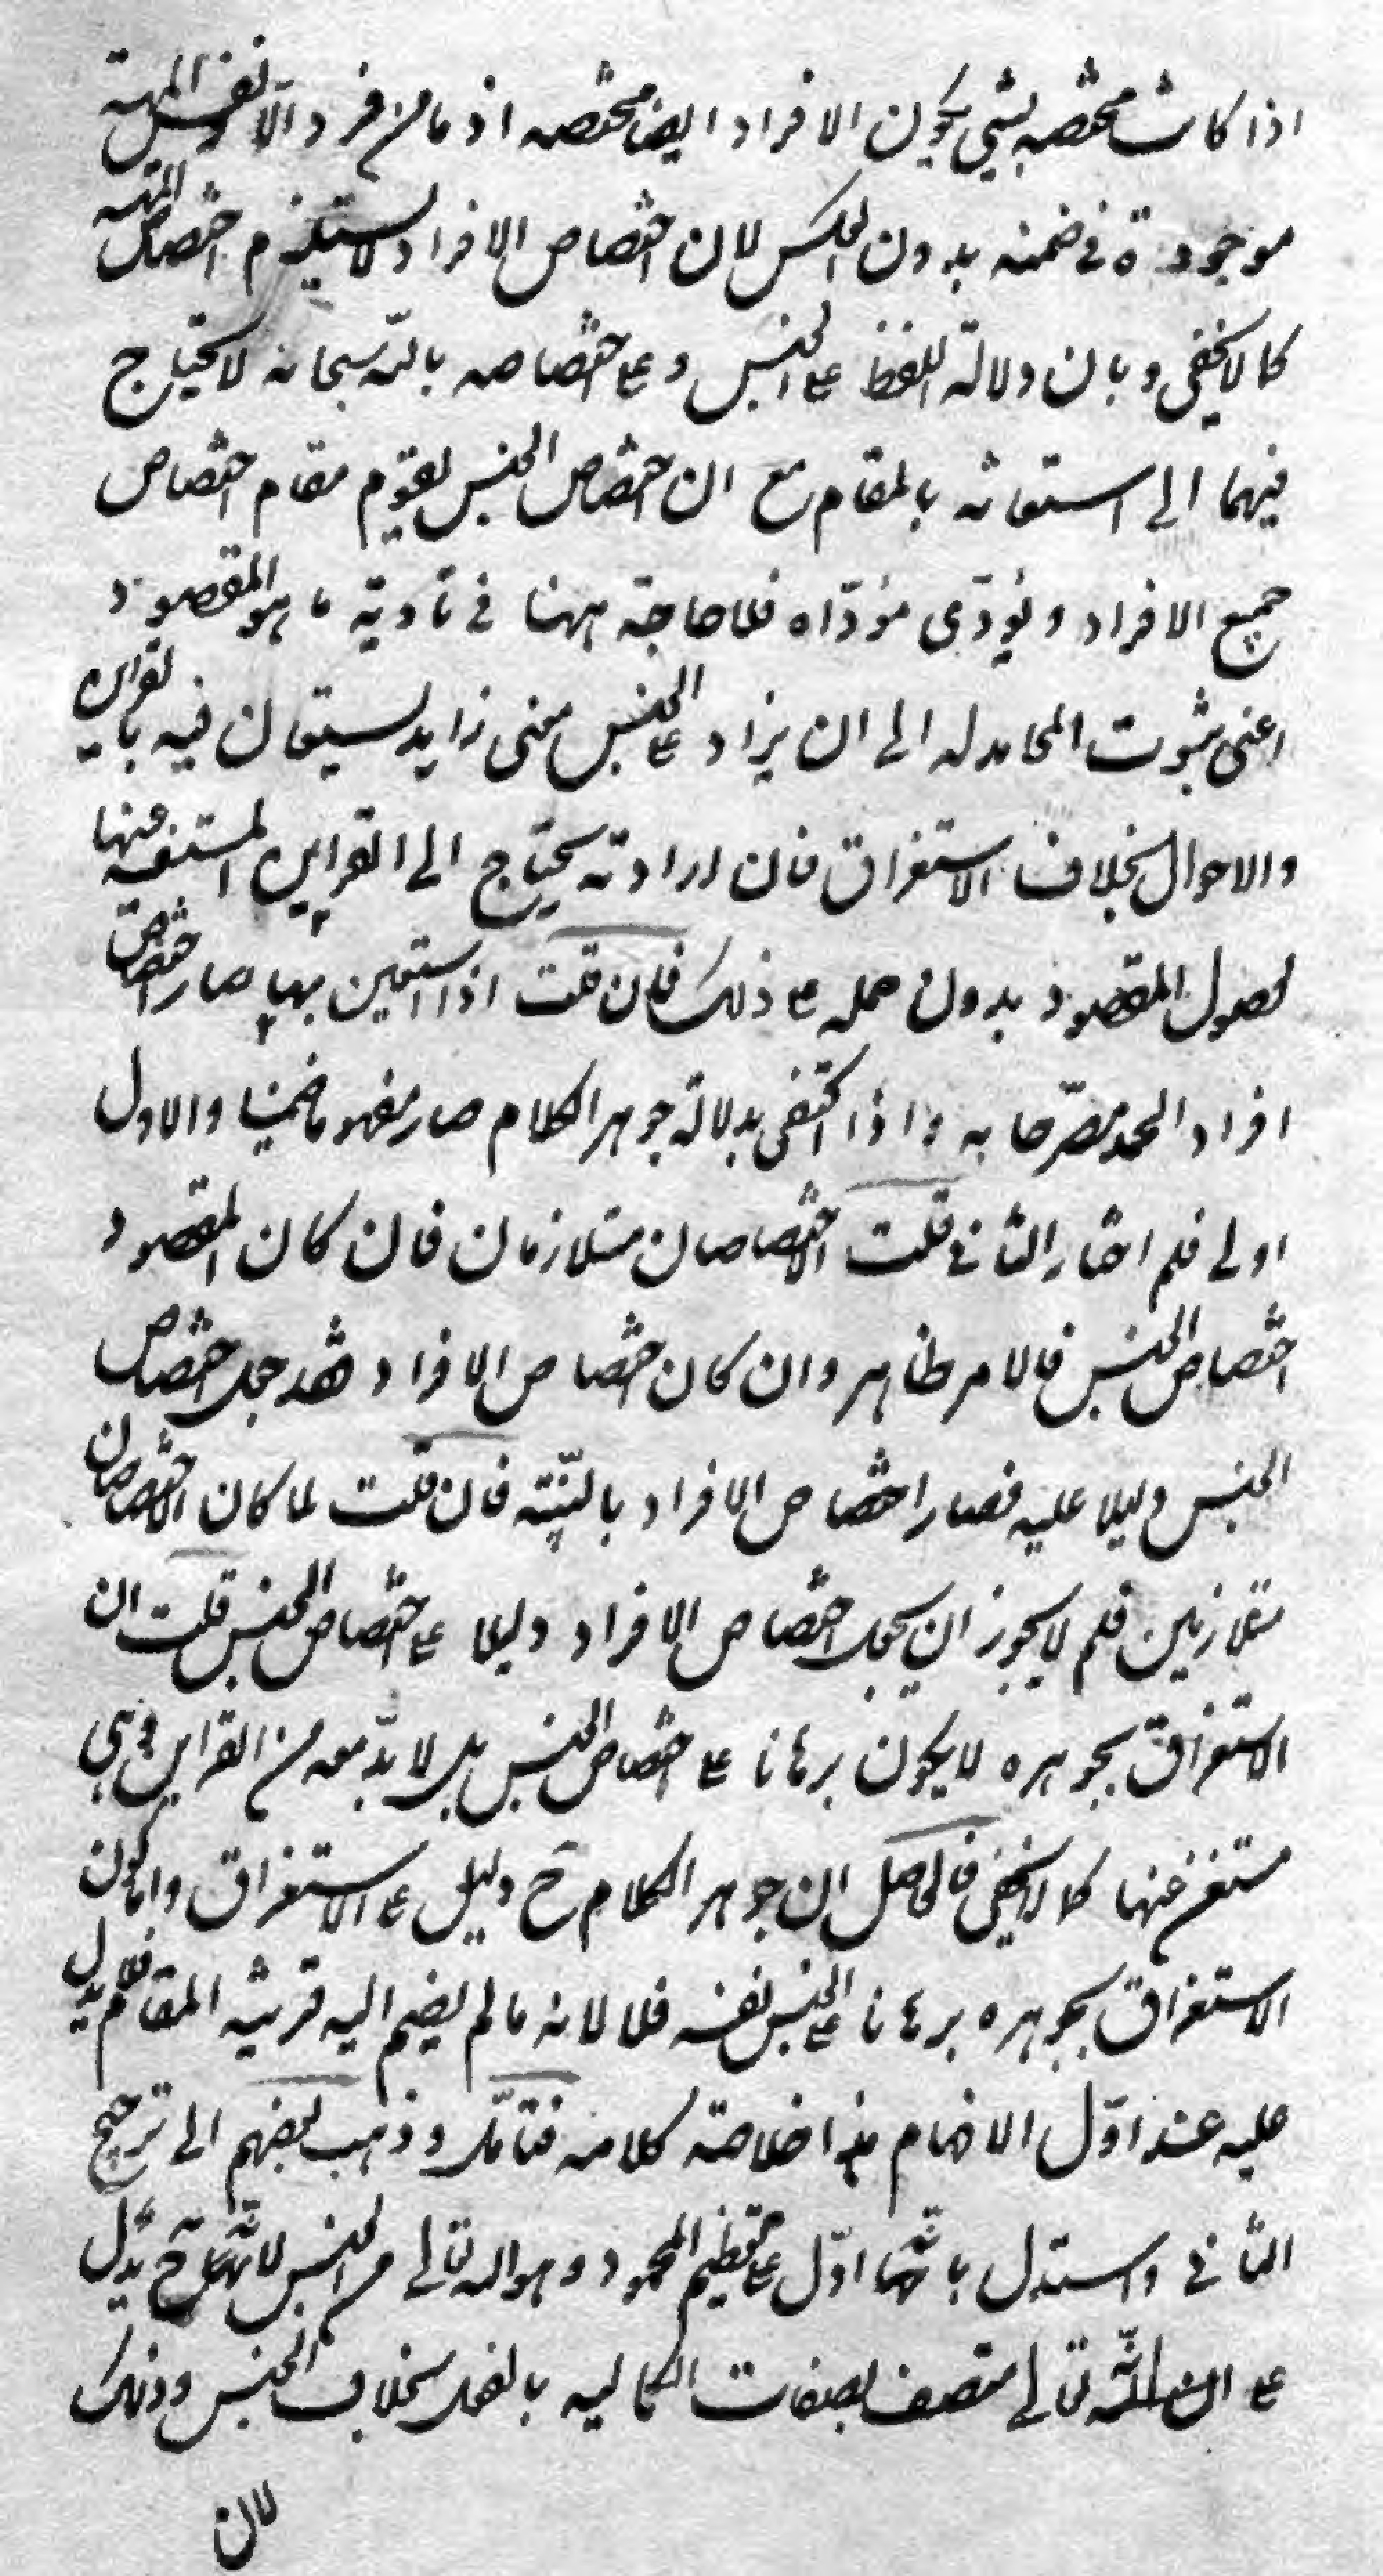 اذا كانت مختصه بشيء يكون الافراد ايضا مختصه اذ ما من فرد الا ونفس المهية
موجودة في ضمنه بدون العكس لان اختصاص الافراد لا يستلزم اختصاص المهية
كما لا يخفى وبان دلالة اللفظ على الجنس وعلى اختصاصه بالله سبحانه لا يحتاج
فيهما الى استعانة بالمقام مع ان اختصاص الجنس يقوم مقام اختصاص
جميع الافراد ويؤدّى مؤدّاه فلا حاجة ههنا في تأدية ما هو المقصود
اعنى ثبوت المحامد له الى ان يزاد على الجنس معنى زايد يستعان فيه بالقراين
والاحوال بخلاف الاستغراق فان ارادته يحتاج الى القراين المستغنية عنها
لحصول المقصود بدون حمله على ذلك فان قلت اذا استعين بها صار اختصاص
افراد الحمد مصرّحا به واذا اكتفى بدلالة جوهر الكلام صار مفهوما ضمنيا والاول
اولى فلم اختار الثاني قلت الاختصاصان متلازمان فان كان المقصود
اختصاص الجنس فالامر ظاهر وان كان اختصاص الافراد فقد جعل اختصاص
الجنس دليلا عليه فصار اختصاص الافراد بالبيّنة فان قلت لما كان الاختصاصان
متلازمين فلم لا يجوز ان يجعل اختصاص الافراد دليلا على اختصاص الجنس قلت ان
الاستغراق بجوهره لا يكون برهانا على اختصاص الجنس بل لا بدّ معه من القراين وهي
مستغن عنها كما لا يخفى فالحاصل ان جوهر الكلام ح دليل على الاستغراق واما كون
الاستغراق بجوهره برهانا على الجنس نفسه فلا لانه ما لم يضم اليه قرينة المقام فلا يدل
عليه عند اوّل الافهام هذا خلاصة كلامه فتأمّل وذهب بعضهم الى ترجيح
الثاني واستدل بانّها ادّل على تعظيم المحمود وهو الله تعالى من الجنس لانها ح يدّل
على ان الله تعالى متصف بصفات الكمالية بالفعل بخلاف الجنس وذلك
لان